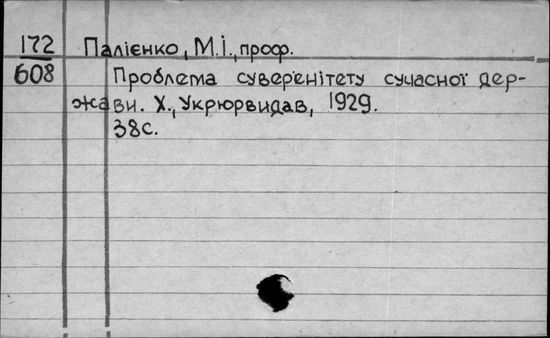 172 Палієнко, М.І., проф.
608 Проблема сувер'енітету сучасної дер-
жави. Х., Укрюрвидав, 1929.
38с.